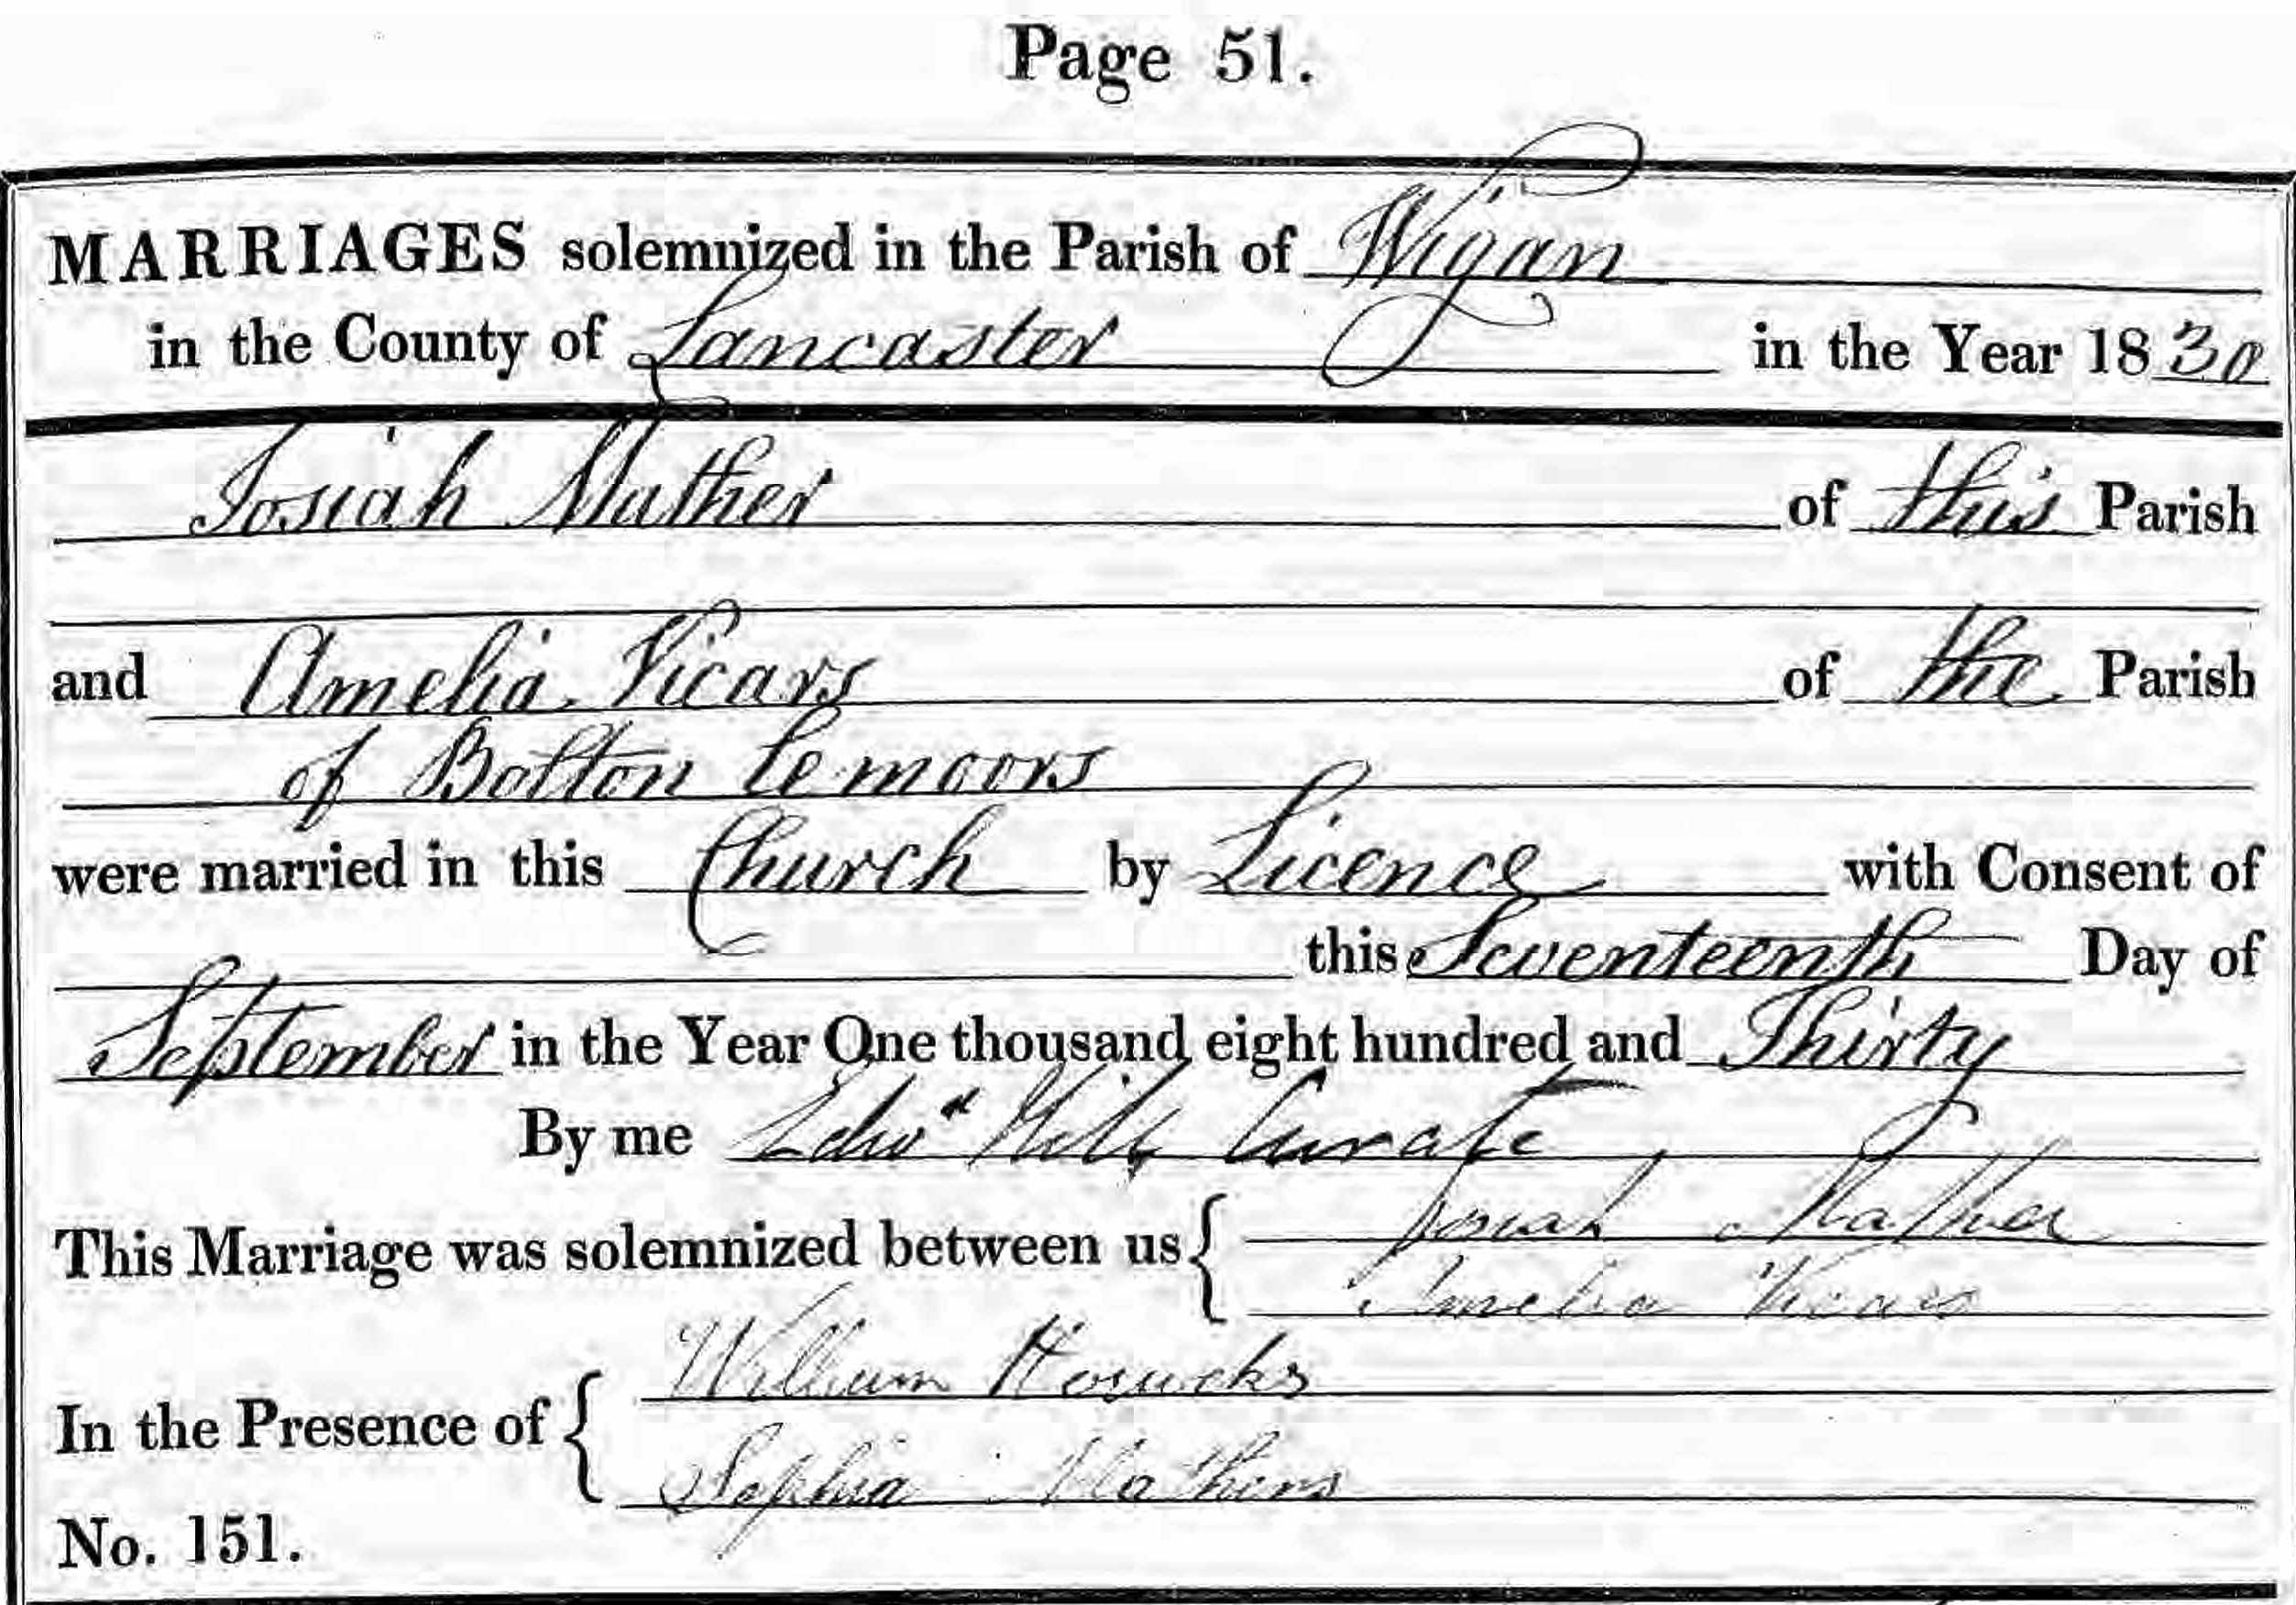 Page 51.
MARRIAGES solemnized in the Parish of Wigan
in the County of Lancaster in the Year 1830
Josiah Mather of this Parish
and Amelia Vicars of the Parish
of Bolton le moors
were married in this Church by Licence with Consent of
this Seventeenth Day of
September in the Year One thousand eight hundred and Thirty
By me Edwd Hill Curate
This Marriage was solemnized between us { Josiah Mather
Amelia Vicars
In the Presence of { William
Sophia Mathers
No. 151.